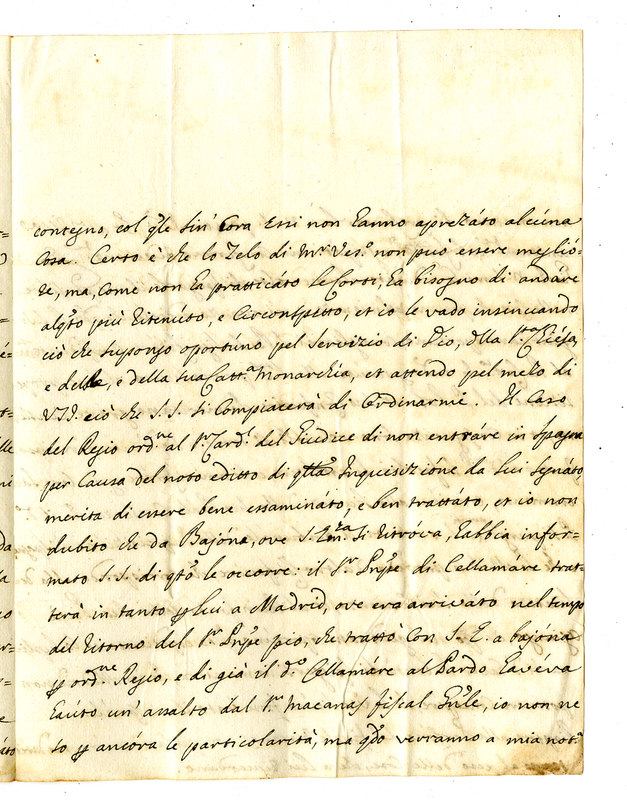 contegno, col qle sin' hora essi non hanno aprezzáto alcúna
cosa. Certo è che lo zelo di Mr. Vesº. non può essere meglió-
re, ma, come non ha pratticáto le Corti, ha bisogno di andáre
alqto più ritenúto, e circonspetto, et io le vado insinuando
ciò che supongo oportúno pel servizio di Dio, dlla Sta. Chiésa,
e della, e della sua Cattca. Monarchía, et attendo pel mezo di
VSI. ciò che S. S. si compiacerà di ordinarmi. Il caso
del Regio ordne al Sr. Cardl. del Giudice di non entráre in Spagna
per causa del noto editto di qtta Inquisizióne da lui segnáto,
merita di essere bene essamináto, e ben trattáto, et io non
dubito che da Bajóna, ove S. Emza. si ritróva, habbia infor-
mato S. S. di qto le occorre: il Sr. Pnpe di Cellamáre trat-
terà in tanto p lui a Madrid, ove era arriváto nel tempo
del ritorno del Sr. Pnpe pio, che trattò con S. E. a bajóna
p ordne. Regio, e di già il do. Cellamáre al Pardo havéva
haúto un' assalto dal Sr. Macanas fiscal Gnle, io non ne
so p ancóra le particolarità, ma qdo verranno a mia nota.